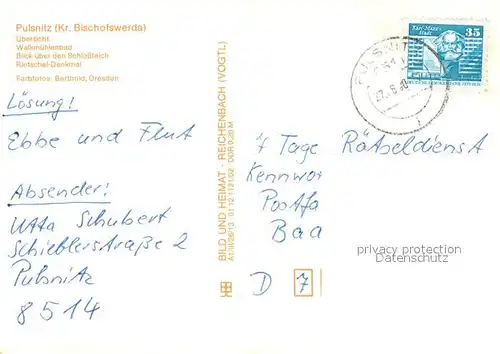 Pulsnitz (Kr. Bischofswerda)
Übersicht
Walkmühlenbad
Blick über den Schloßteich
Rietschel-Denkmal
Farbfotos: Berthold, Dresden
Lösung!
Ebbe und Flut
Absender!
Utta Schubert
Schießlerstraße 2
Pulsnitz
8514
BILD UND HEIMAT · REICHENBACH (VOGTL)
DDR 0,20 M
Karl-Marx-
Stadt
35
7 Tage Rätseldienst
Kennwor
Postfa
Baa
privacy protection
Datenschutz
D 7